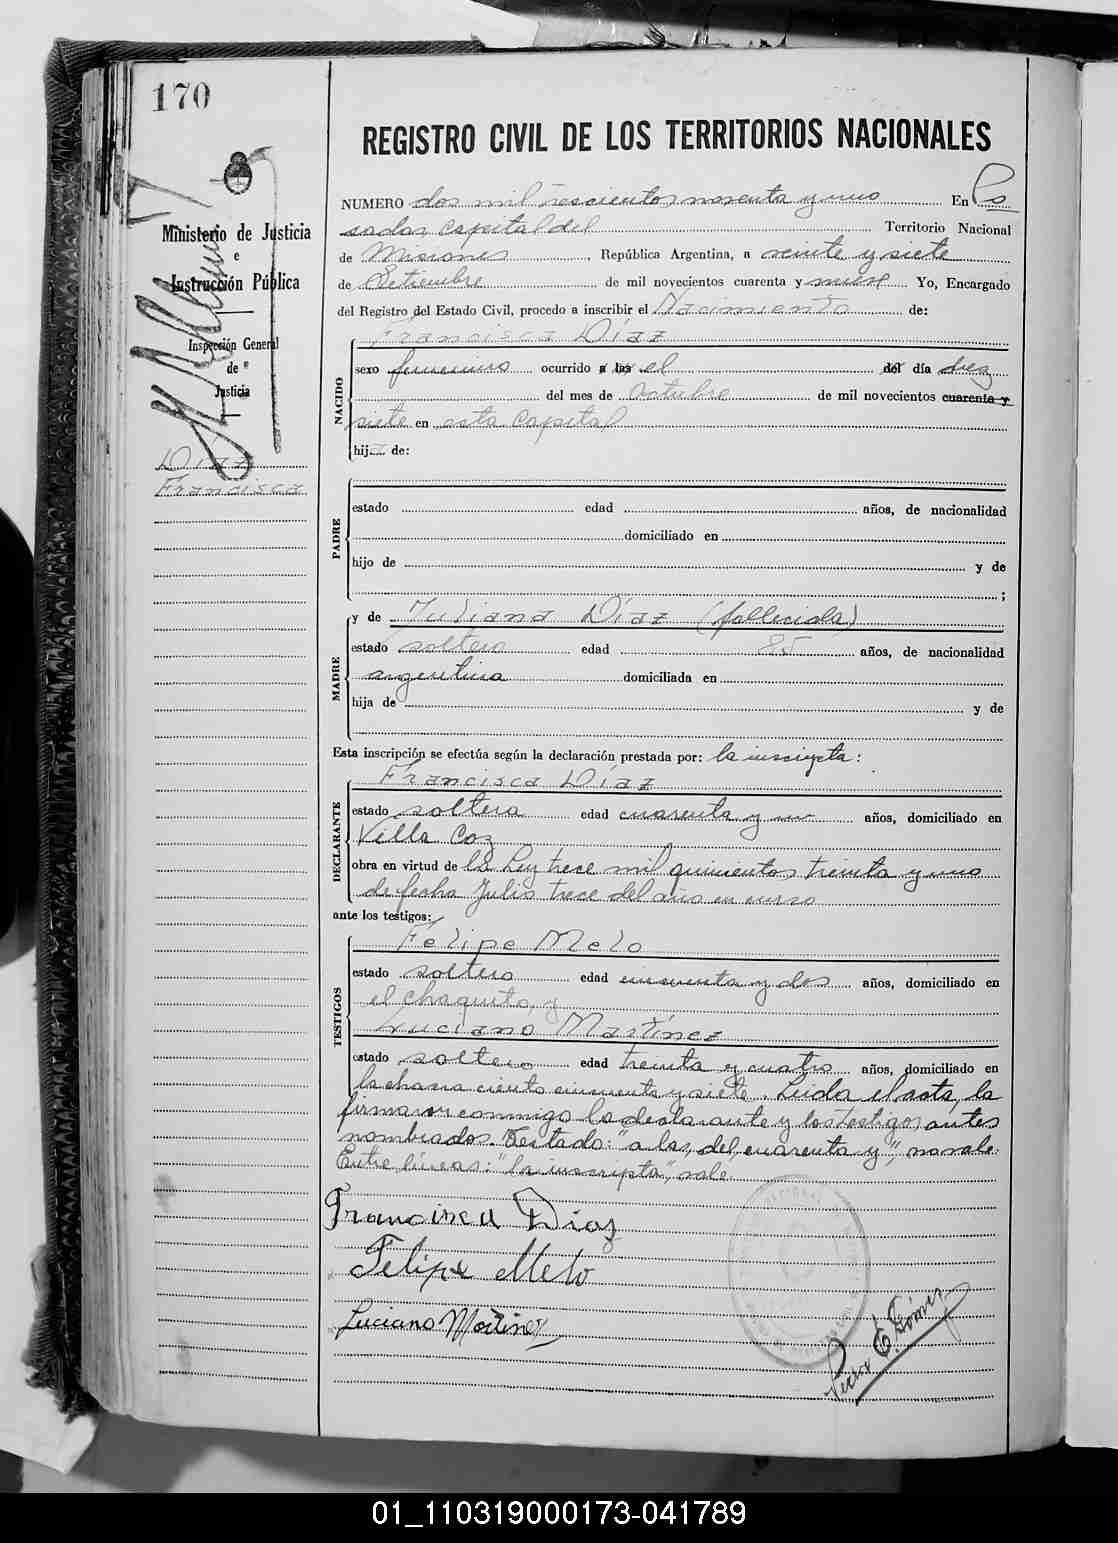 170
REGISTRO CIVIL DE LOS TERRITORIOS NACIONALES
Ministerio de Justicia
e
Instrucción Pública
Inspección General
de
Justicia
Díaz
Francisca
NUMERO dos mil trescientos noventa y uno En Po
sadas Capital del Territorio Nacional
de Misiones, República Argentina, a veinte y siete
de Setiembre de mil novecientos cuarenta y nueve Yo, Encargado
del Registro del Estado Civil, procedo a inscribir el Nacimiento de:
NACIDO
Francisca Díaz
sexo femenino ocurrido a las el del día diez
del mes de Octubre de mil novecientos cuarenta y
siete en esta Capital
hija de:
PADRE
estado edad años, de nacionalidad
domiciliado en
hijo de y de
;
MADRE
y de Juliana Díaz (fallecida)
estado soltera edad 85 años, de nacionalidad
argentina domiciliada en
hija de y de
Esta inscripción se efectúa según la declaración prestada por: la inscripta:
DECLARANTE
Francisca Díaz
estado soltera edad cuarenta y un años, domiciliado en
Villa Coz
obra en virtud de la Ley trece mil quinientos treinta y uno
de fecha Julio trece del año en curso
ante los testigos:
TESTIGOS
Felipe Melo
estado soltero edad cincuenta y dos años, domiciliado en
el Chaquito, y
Luciano Martínez
estado soltero edad treinta y cuatro años, domiciliado en
la chacra ciento cincuenta y siete. Leida el acta, la
firmaron conmigo la declarante y los testigos antes
nombrados. Testado: "a las, del, cuarenta y", no vale.
Entre líneas: "la inscripta", vale.
Francisca Diaz
Felipe Melo
Luciano Martinez
Gómez
01_110319000173-041789